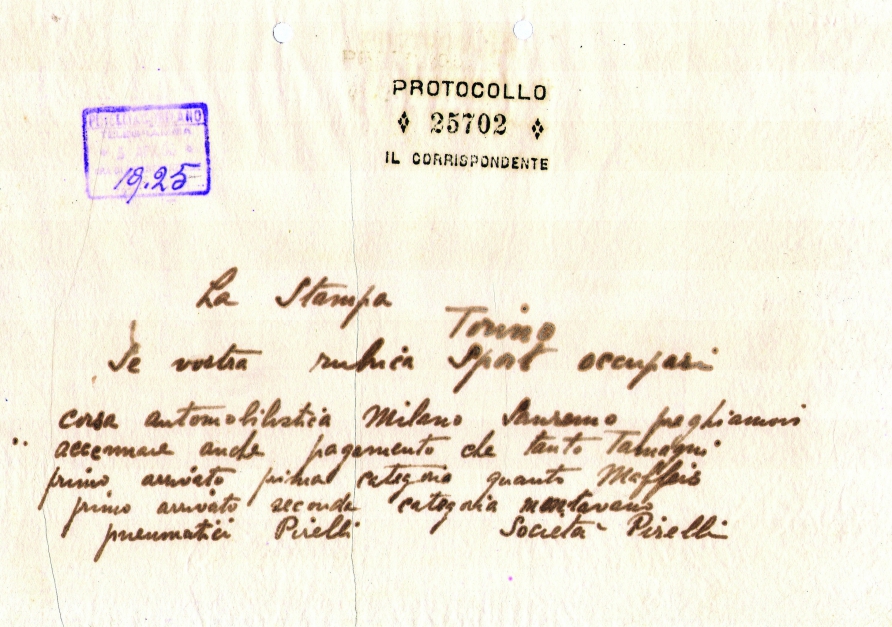 PROTOCOLLO
25702
IL CORRISPONDENTE
19.25
La Stampa
Torino
Se vostra rubrica Sport occupasi
corsa automobilistica Milano Sanremo preghiamovi
accennare anche pagamento che tanto Tamagni
primo arrivato prima categoria quanto Maffeis
primo arrivato seconda categoria montavano
pneumatici Pirelli Società Pirelli